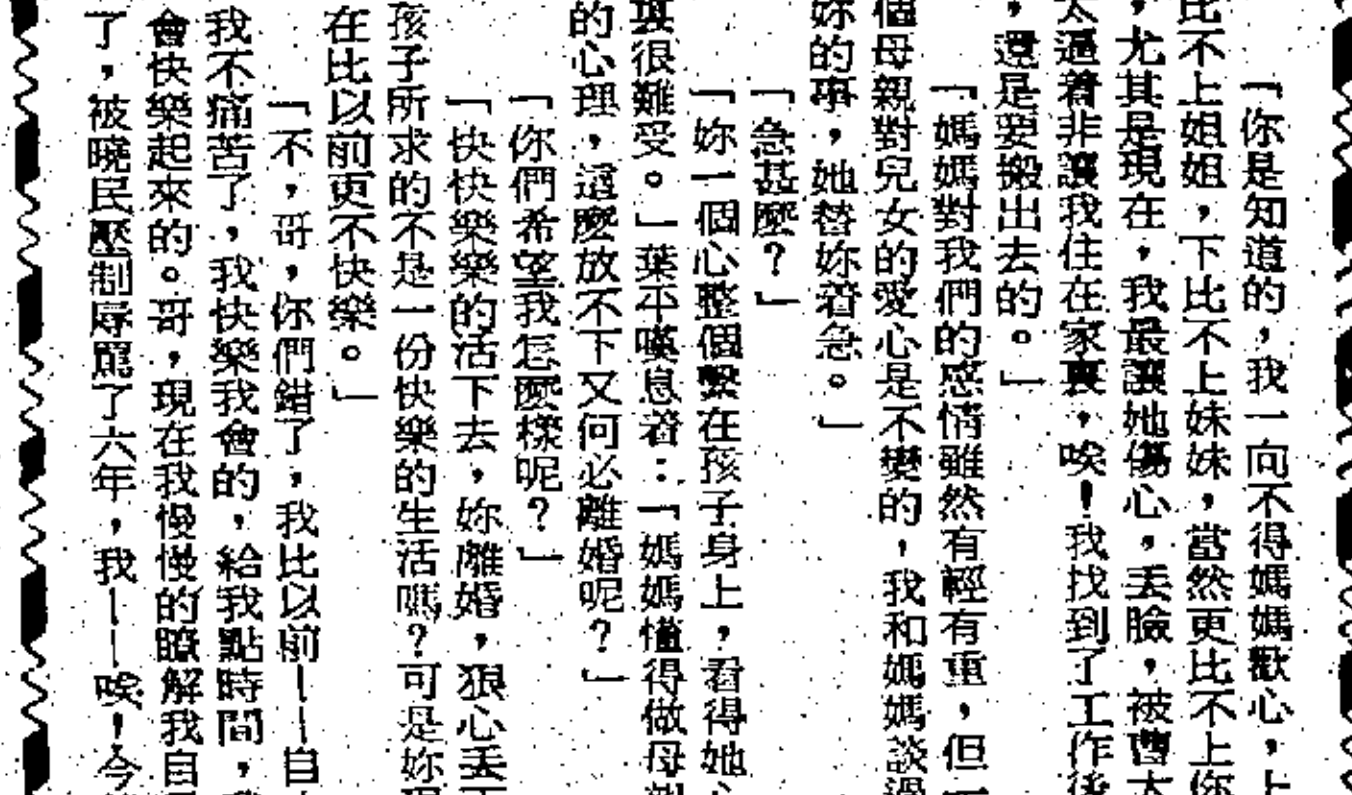 「你是知道的，我一向不得媽媽歡心，上
比不上姐姐，下比不上妹妹，當然更比不上你
，尤其是現在，我最讓她傷心，丟臉，被曹太
太逼着非讓我住在家裏，唉！我找到了工作後
，還是要搬出去的。」
「媽媽對我們的感情雖然有輕有重，但一
個母親對兒女的愛心是不變的，我和媽媽談過
妳的事，她替妳着急。」
「急甚麼？」
「妳一個心整個繫在孩子身上，看得她心
裏很難受。」葉平嘆息着：「媽媽懂得做母親
的心理，這麼放不下又何必離婚呢？」
「你們希望我怎麼樣呢？」
「快快樂樂的活下去，妳離婚，狠心丟下
孩子所求的不是一份快樂的生活嗎？可是妳現
在比以前更不快樂。」
「不，哥，你們錯了，我比以前——自
我不痛苦了，我快樂我會的，給我點時間，我
會快樂起來的。哥，現在我慢慢的瞭解我自
了，被曉民壓制辱罵了六年，我——唉！今